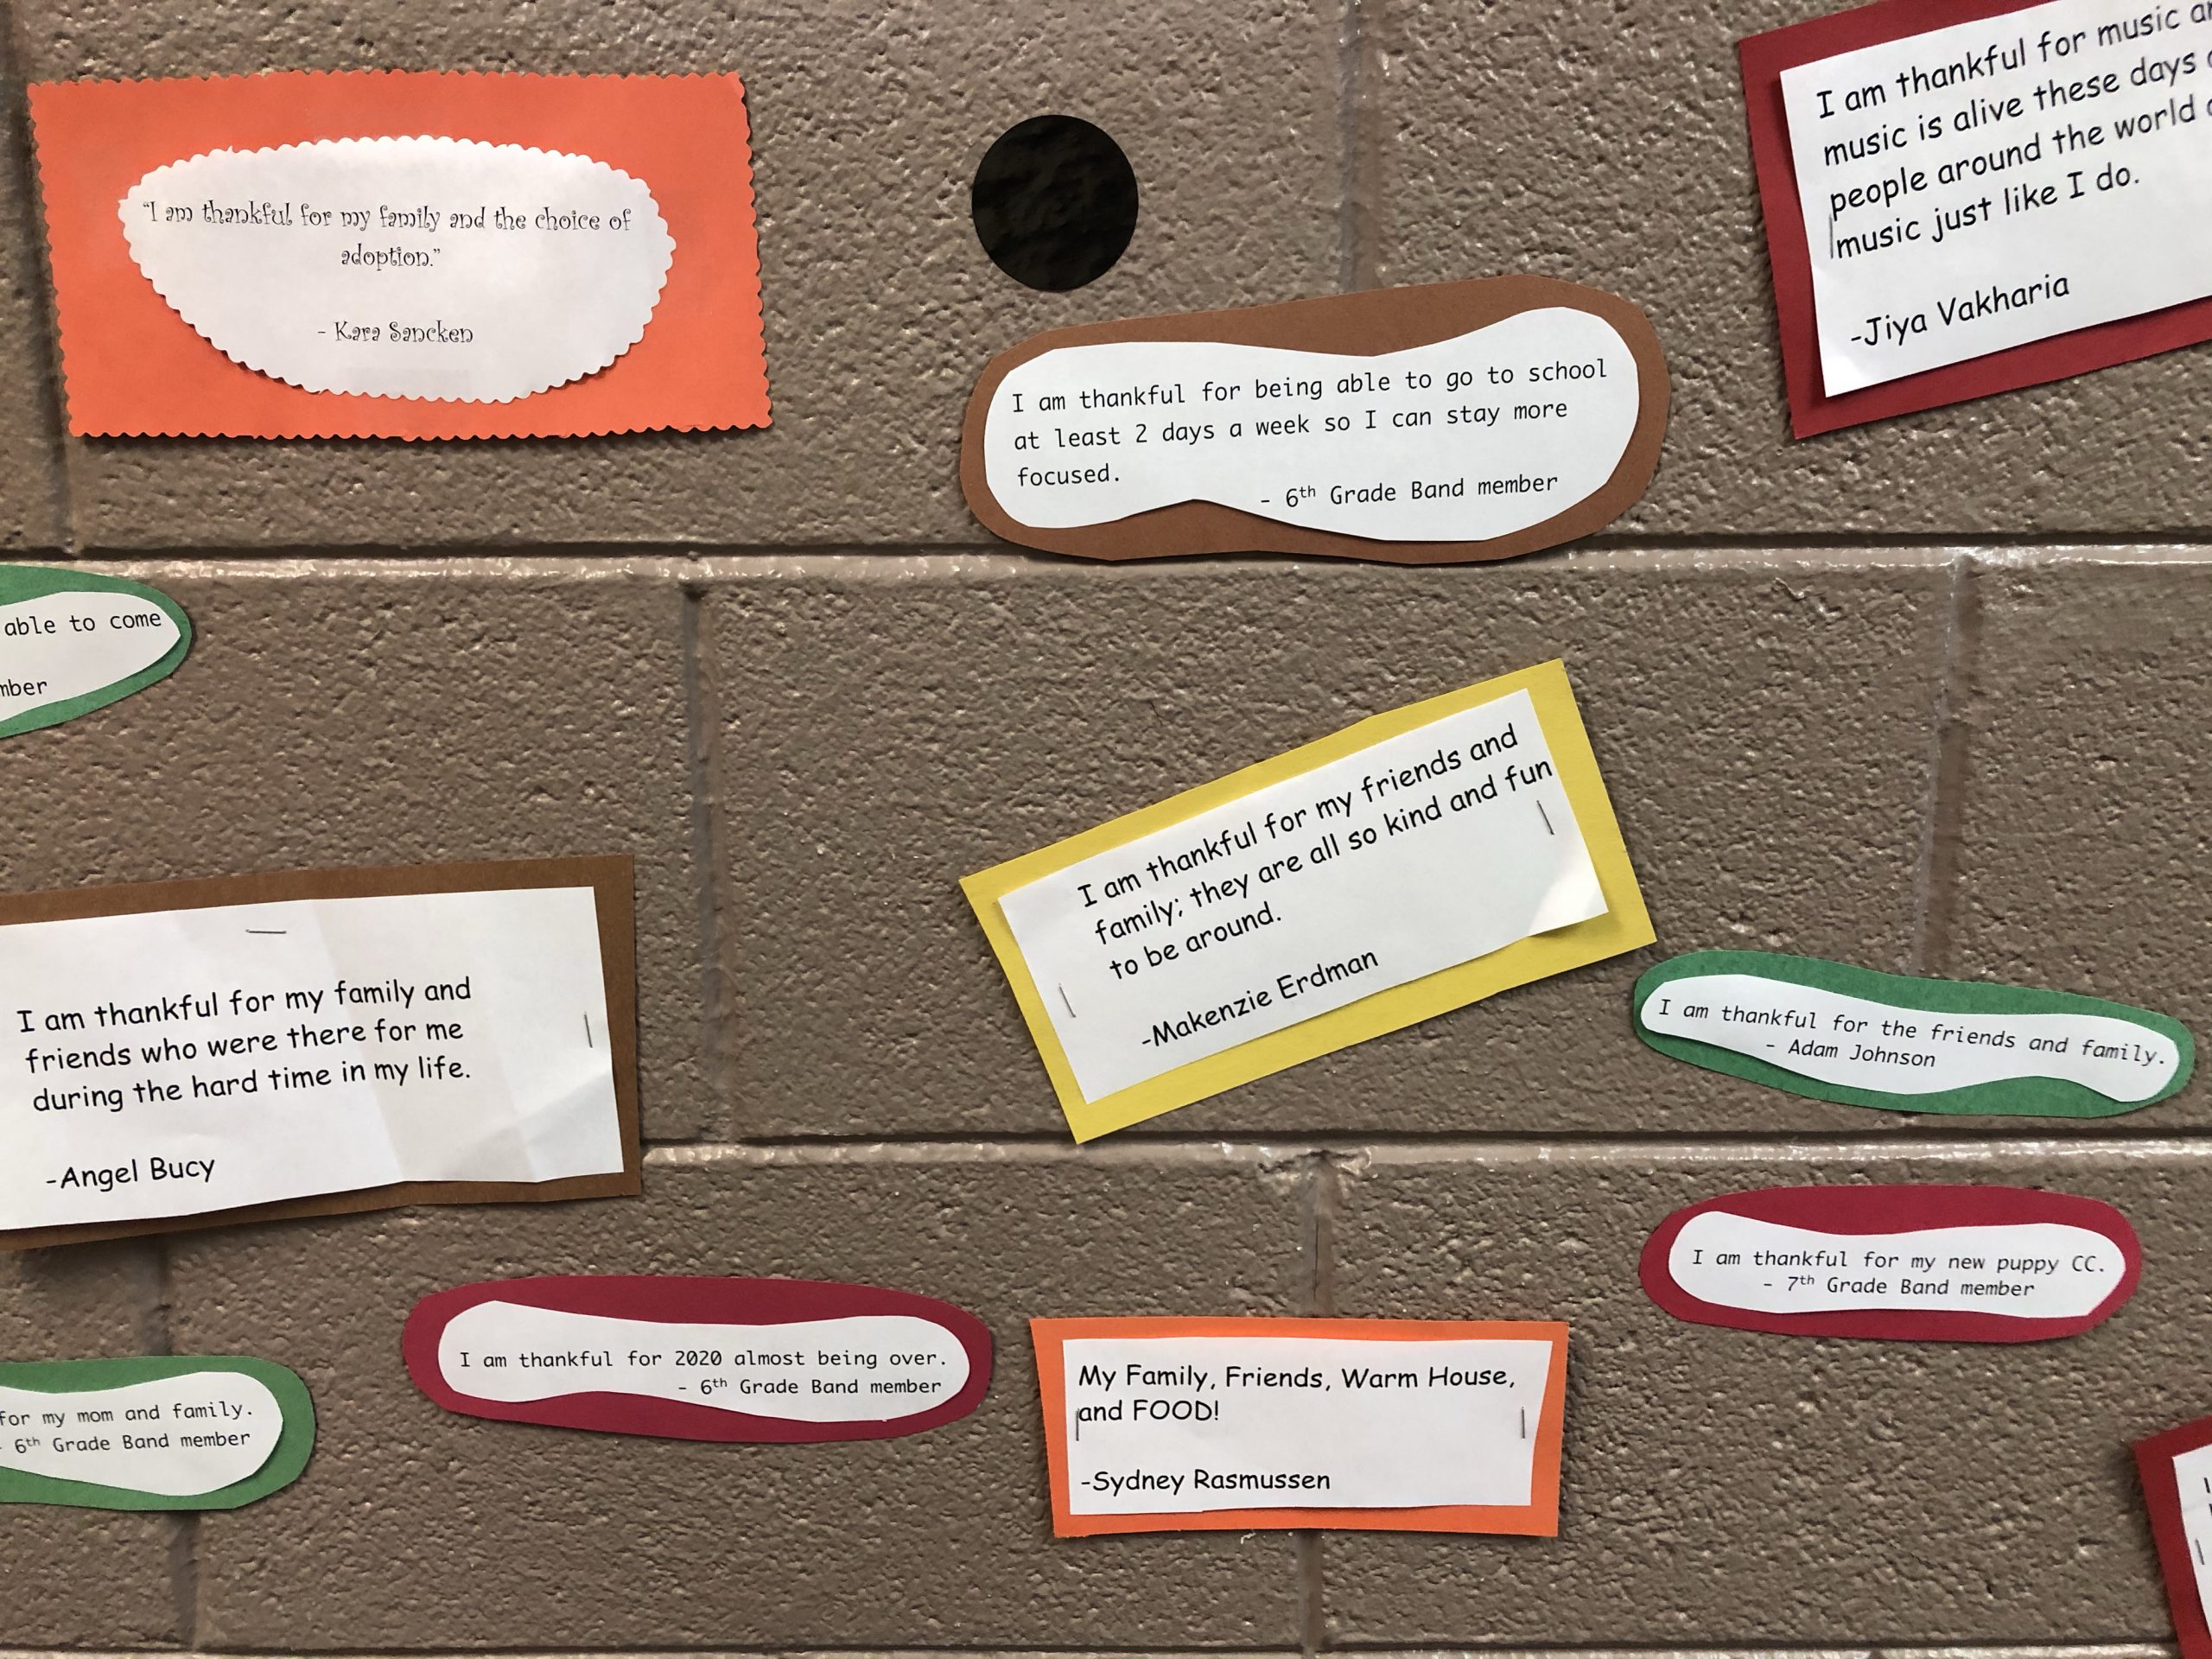 "I am thankful for my family and the choice of
adoption."
- Kara Sancken
I am thankful for music
music is alive these days
people around the world
music just like I do.
-Jiya Vakharia
I am thankful for being able to go to school
at least 2 days a week so I can stay more
focused.
- 6th Grade Band member
able to come
I am thankful for my friends and
family; they are all so kind and fun
to be around.
-Makenzie Erdman
I am thankful for my family and
friends who were there for me
during the hard time in my life.
-Angel Bucy
I am thankful for the friends and family.
- Adam Johnson
I am thankful for my new puppy CC.
- 7th Grade Band member
I am thankful for 2020 almost being over.
- 6th Grade Band member
My Family, Friends, Warm House,
and FOOD!
-Sydney Rasmussen
for my mom and family.
- 6th Grade Band member